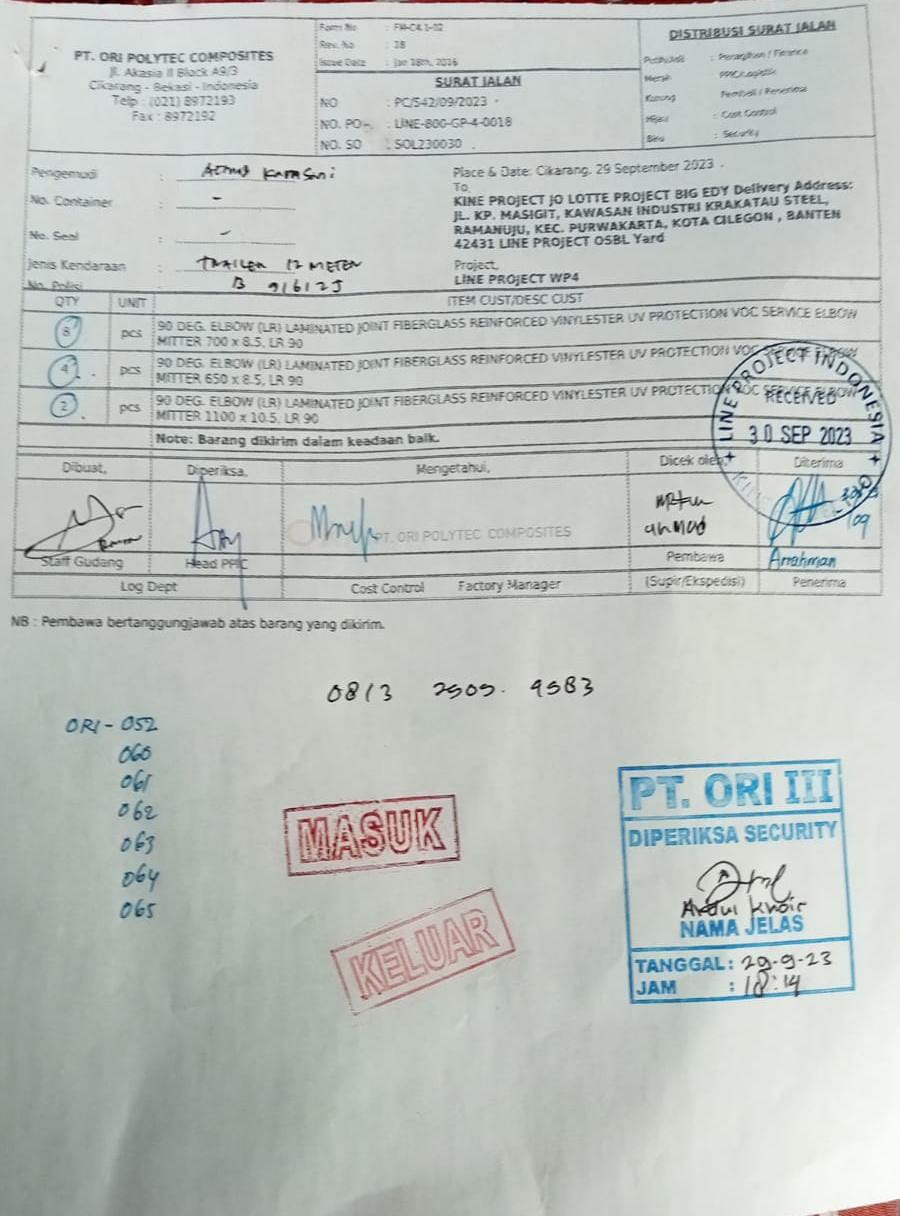 PT. ORI POLYTEC COMPOSITES
Jl. Akasia II Block A9/3
Cikarang - Bekasi - Indonesia
Telp : (021) 8972193
Fax : 8972192
Form No : FM-C4.1-02
Rev. No : 18
Issue Date : Jan 18th, 2016
SURAT JALAN
NO : PC/542/09/2023
NO. PO : LINE-B0G-GP-4-0018
NO. SO : SOL230030
DISTRIBUSI SURAT JALAN
Putih/Asli : Penagihan / Finance
Merah PPIC/Logistik
Kuning Pembeli / Penerima
Hijau : Cost Control
Biru : Security
Pengemudi :
No. Container : -
No. Seal : -
Jenis Kendaraan : TRAILER 12 METER
No. Polisi B 9161 25
Place & Date: Cikarang, 29 September 2023
To,
KINE PROJECT JO LOTTE PROJECT BIG EDY Delivery Address:
JL. KP. MASIGIT, KAWASAN INDUSTRI KRAKATAU STEEL,
RAMANUJU, KEC. PURWAKARTA, KOTA CILEGON , BANTEN
42431 LINE PROJECT OSBL Yard
Project,
LINE PROJECT WP4
QTY UNIT ITEM CUST/DESC CUST
8 pcs 90 DEG. ELBOW (LR) LAMINATED JOINT FIBERGLASS REINFORCED VINYLESTER UV PROTECTION VOC SERVICE ELBOW
MITTER 700 x 8.5, LR 90
4 pcs 90 DEG. ELBOW (LR) LAMINATED JOINT FIBERGLASS REINFORCED VINYLESTER UV PROTECTION VOC SERVICE ELBOW
MITTER 650 x 8.5, LR 90
2 pcs 90 DEG. ELBOW (LR) LAMINATED JOINT FIBERGLASS REINFORCED VINYLESTER UV PROTECTION VOC SERVICE ELBOW
MITTER 1100 x 10.5, LR 90
Note: Barang dikirim dalam keadaan baik.
LINE PROJECT INDONESIA
RECEIVED
30 SEP 2023
Dibuat, Diperiksa, Mengetahui, Dicek oleh, Diterima
PT. ORI POLYTEC COMPOSITES
ahmad
Arrahman
Staff Gudang Head PPIC Pembawa
Log Dept Cost Control Factory Manager (Supir/Ekspedisi) Penerima
NB : Pembawa bertanggungjawab atas barang yang dikirim.
0813 2505. 9583
ORI - 052
060
061
062
063
064
065
MASUK
KELUAR
PT. ORI III
DIPERIKSA SECURITY
Abdul Khoir
NAMA JELAS
TANGGAL: 29-9-23
JAM : 18:14